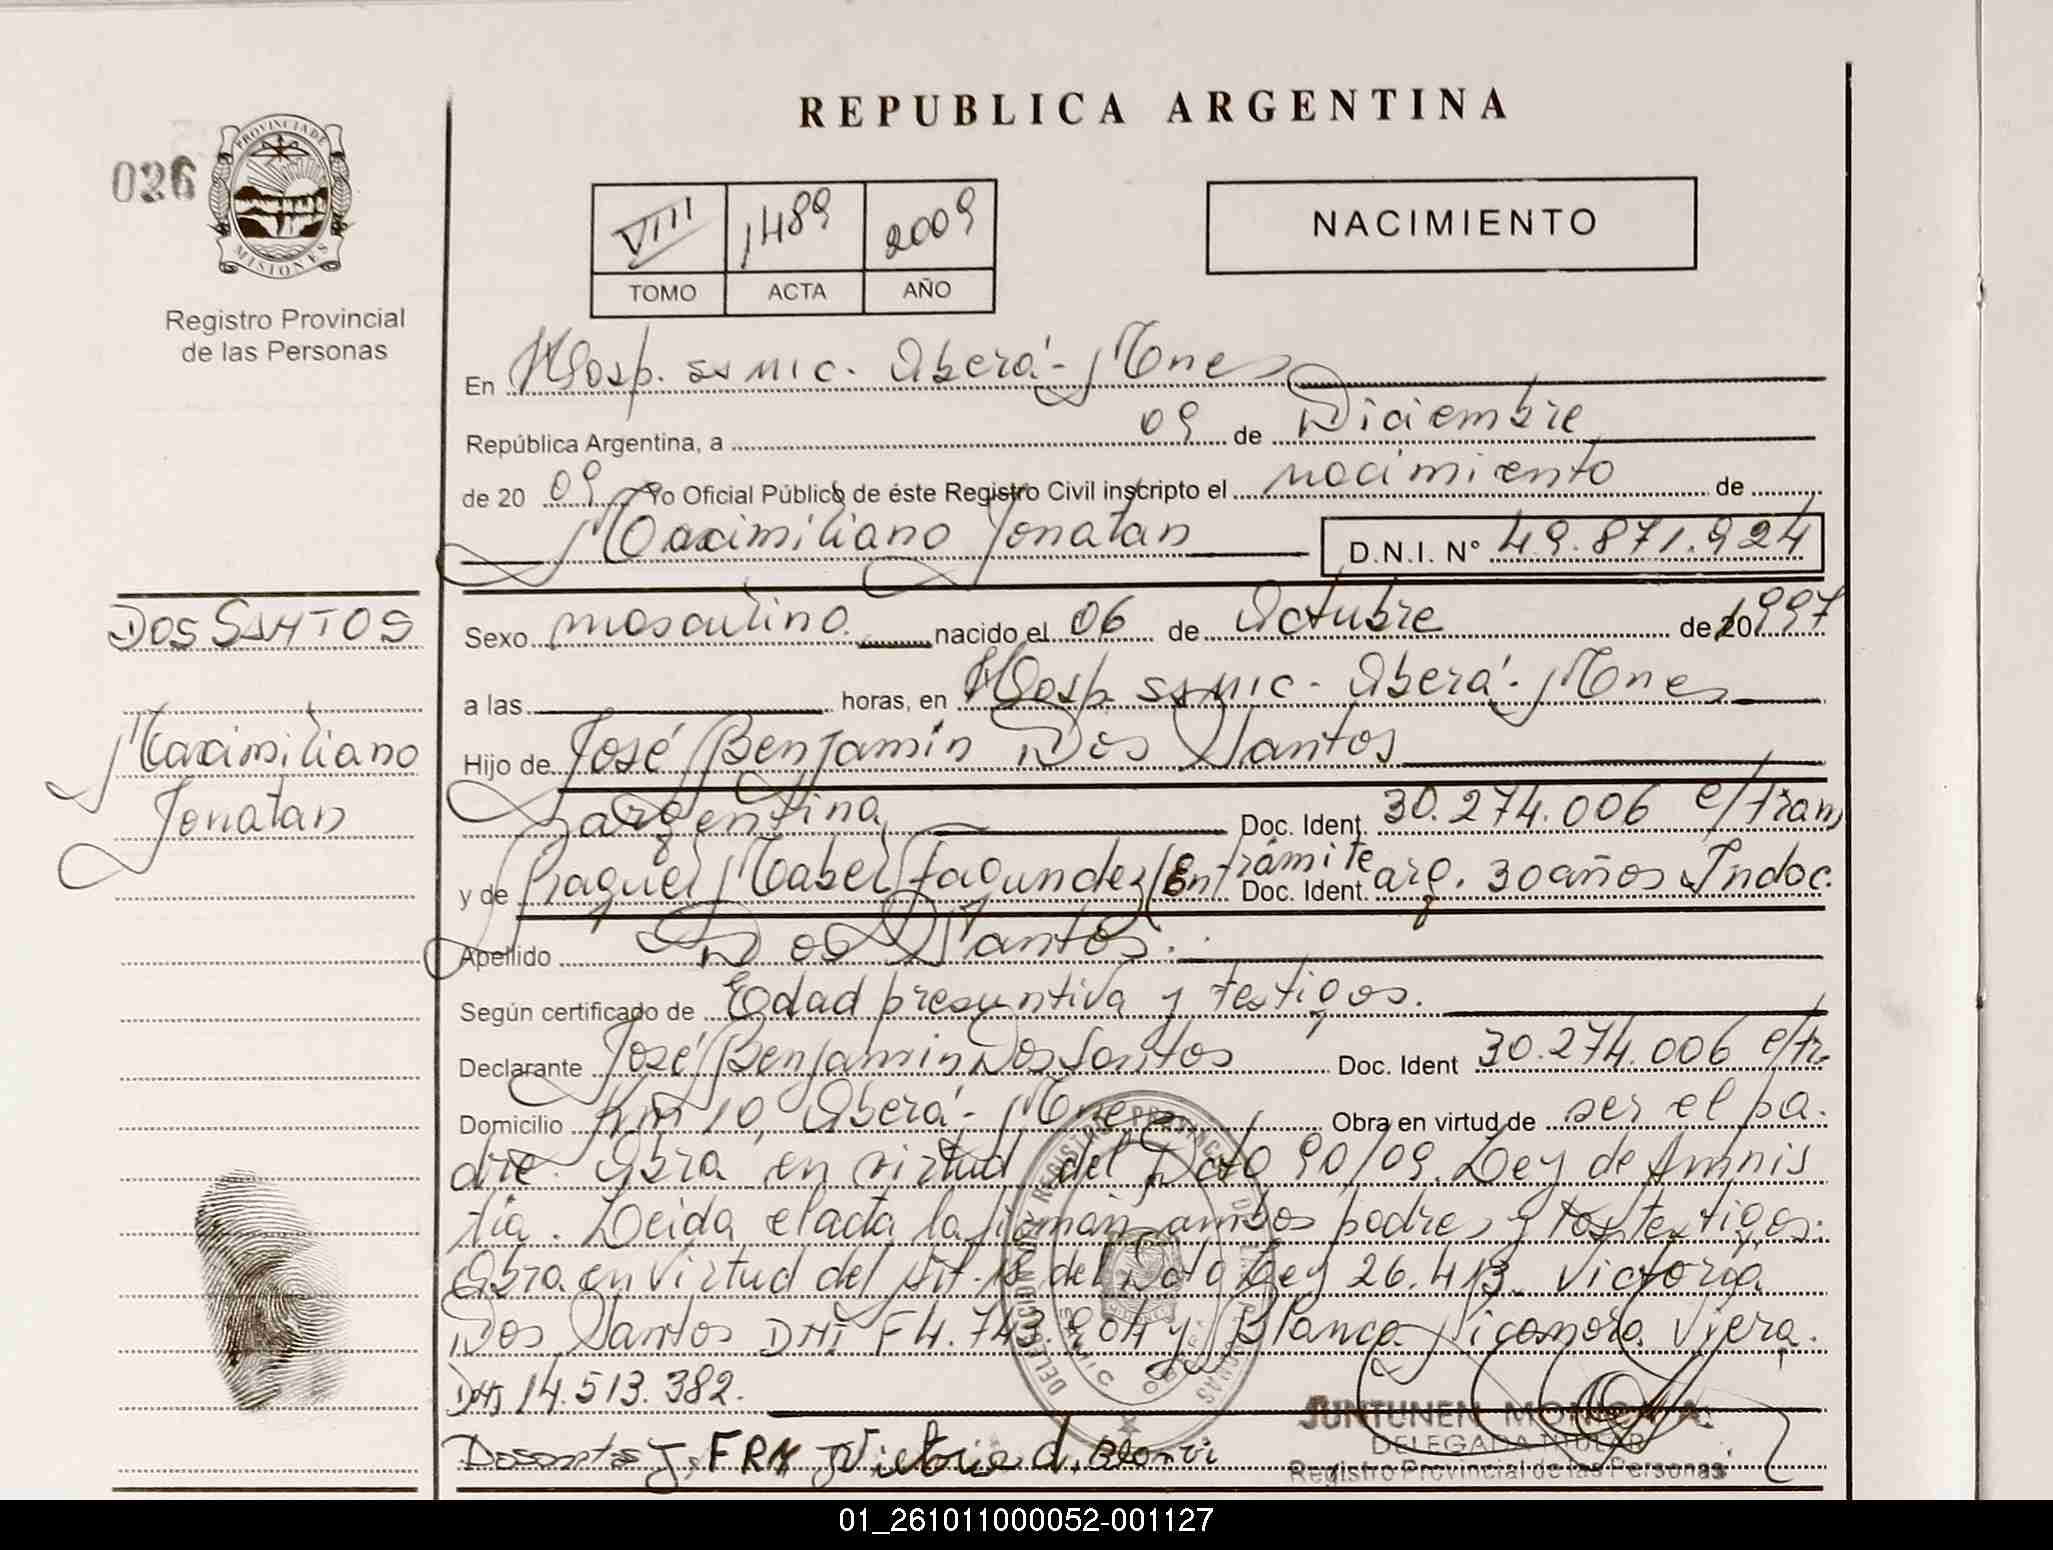 REPUBLICA ARGENTINA
026
PROVINCIA DE
MISIONES
Registro Provincial
de las Personas
VIII 1489 2009
TOMO ACTA AÑO
NACIMIENTO
En Hosp. SAMIC. Oberá - Mnes
República Argentina, a 09 de Diciembre
de 20 09 Yo Oficial Público de éste Registro Civil inscripto el nacimiento de
Maximiliano Jonatan D.N.I. N° 49.871.924
DOS SANTOS
Maximiliano
Jonatan
Sexo masculino nacido el 06 de Octubre de 20 1997
a las horas, en Hosp. SAMIC - Oberá - Mnes
Hijo de José Benjamin Dos Santos
argentina Doc. Ident. 30.274.006 e/tram
y de Raquel Mabel Fagundez (En trámite Doc. Ident. arg. 30 años Indoc.
Apellido Dos Santos.
Según certificado de Edad presuntiva y testigos.
Declarante José Benjamin Dos Santos Doc. Ident 30.274.006 e/tr.
Domicilio Km 10, Oberá - Mnes Obra en virtud de ser el pa-
dre. Obra en virtud del Dcto 90/09. Ley de Amnis
tía. Leida el acta la firman ambos padres y los testigos.
Obra en virtud del Art. 18 del Dcto Ley 26.413. Victoria
Dos Santos DNI F4.743.904 y Blanca Nicomora Viera.
DNI 14.513.382.
Dosantos J. FRM Victoria d.
JUNTUNEN MONICA A.
DELEGADA TITULAR
Registro Provincial de las Personas
01_261011000052-001127